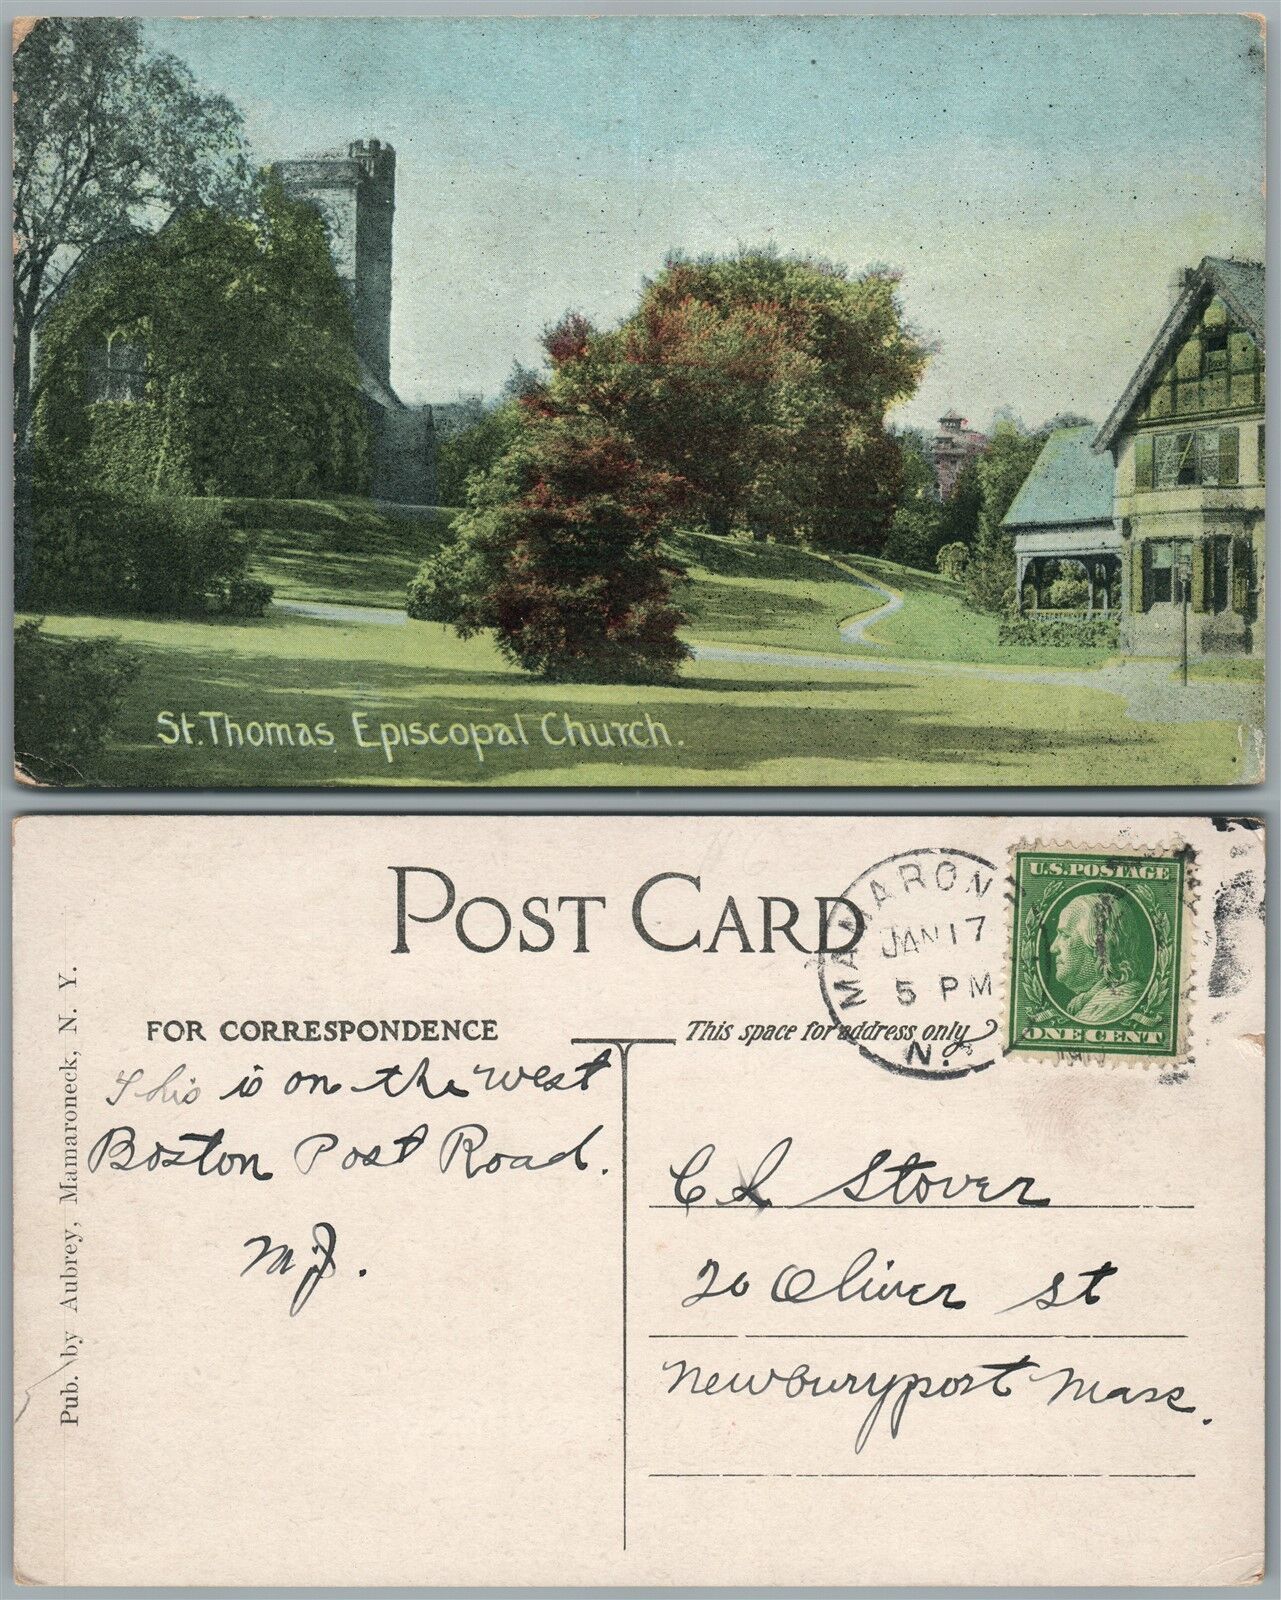 St. Thomas Episcopal Church.
POST CARD
MAMARON
JAN 17
5 PM
N.
U.S. POSTAGE
ONE CENT
FOR CORRESPONDENCE
This space for address only
This is on the west
Boston Post Road.
M.J.
C L Stover
20 Oliver st
Newburyport Mass.
Pub. by Aubrey, Mamaroneck, N. Y.